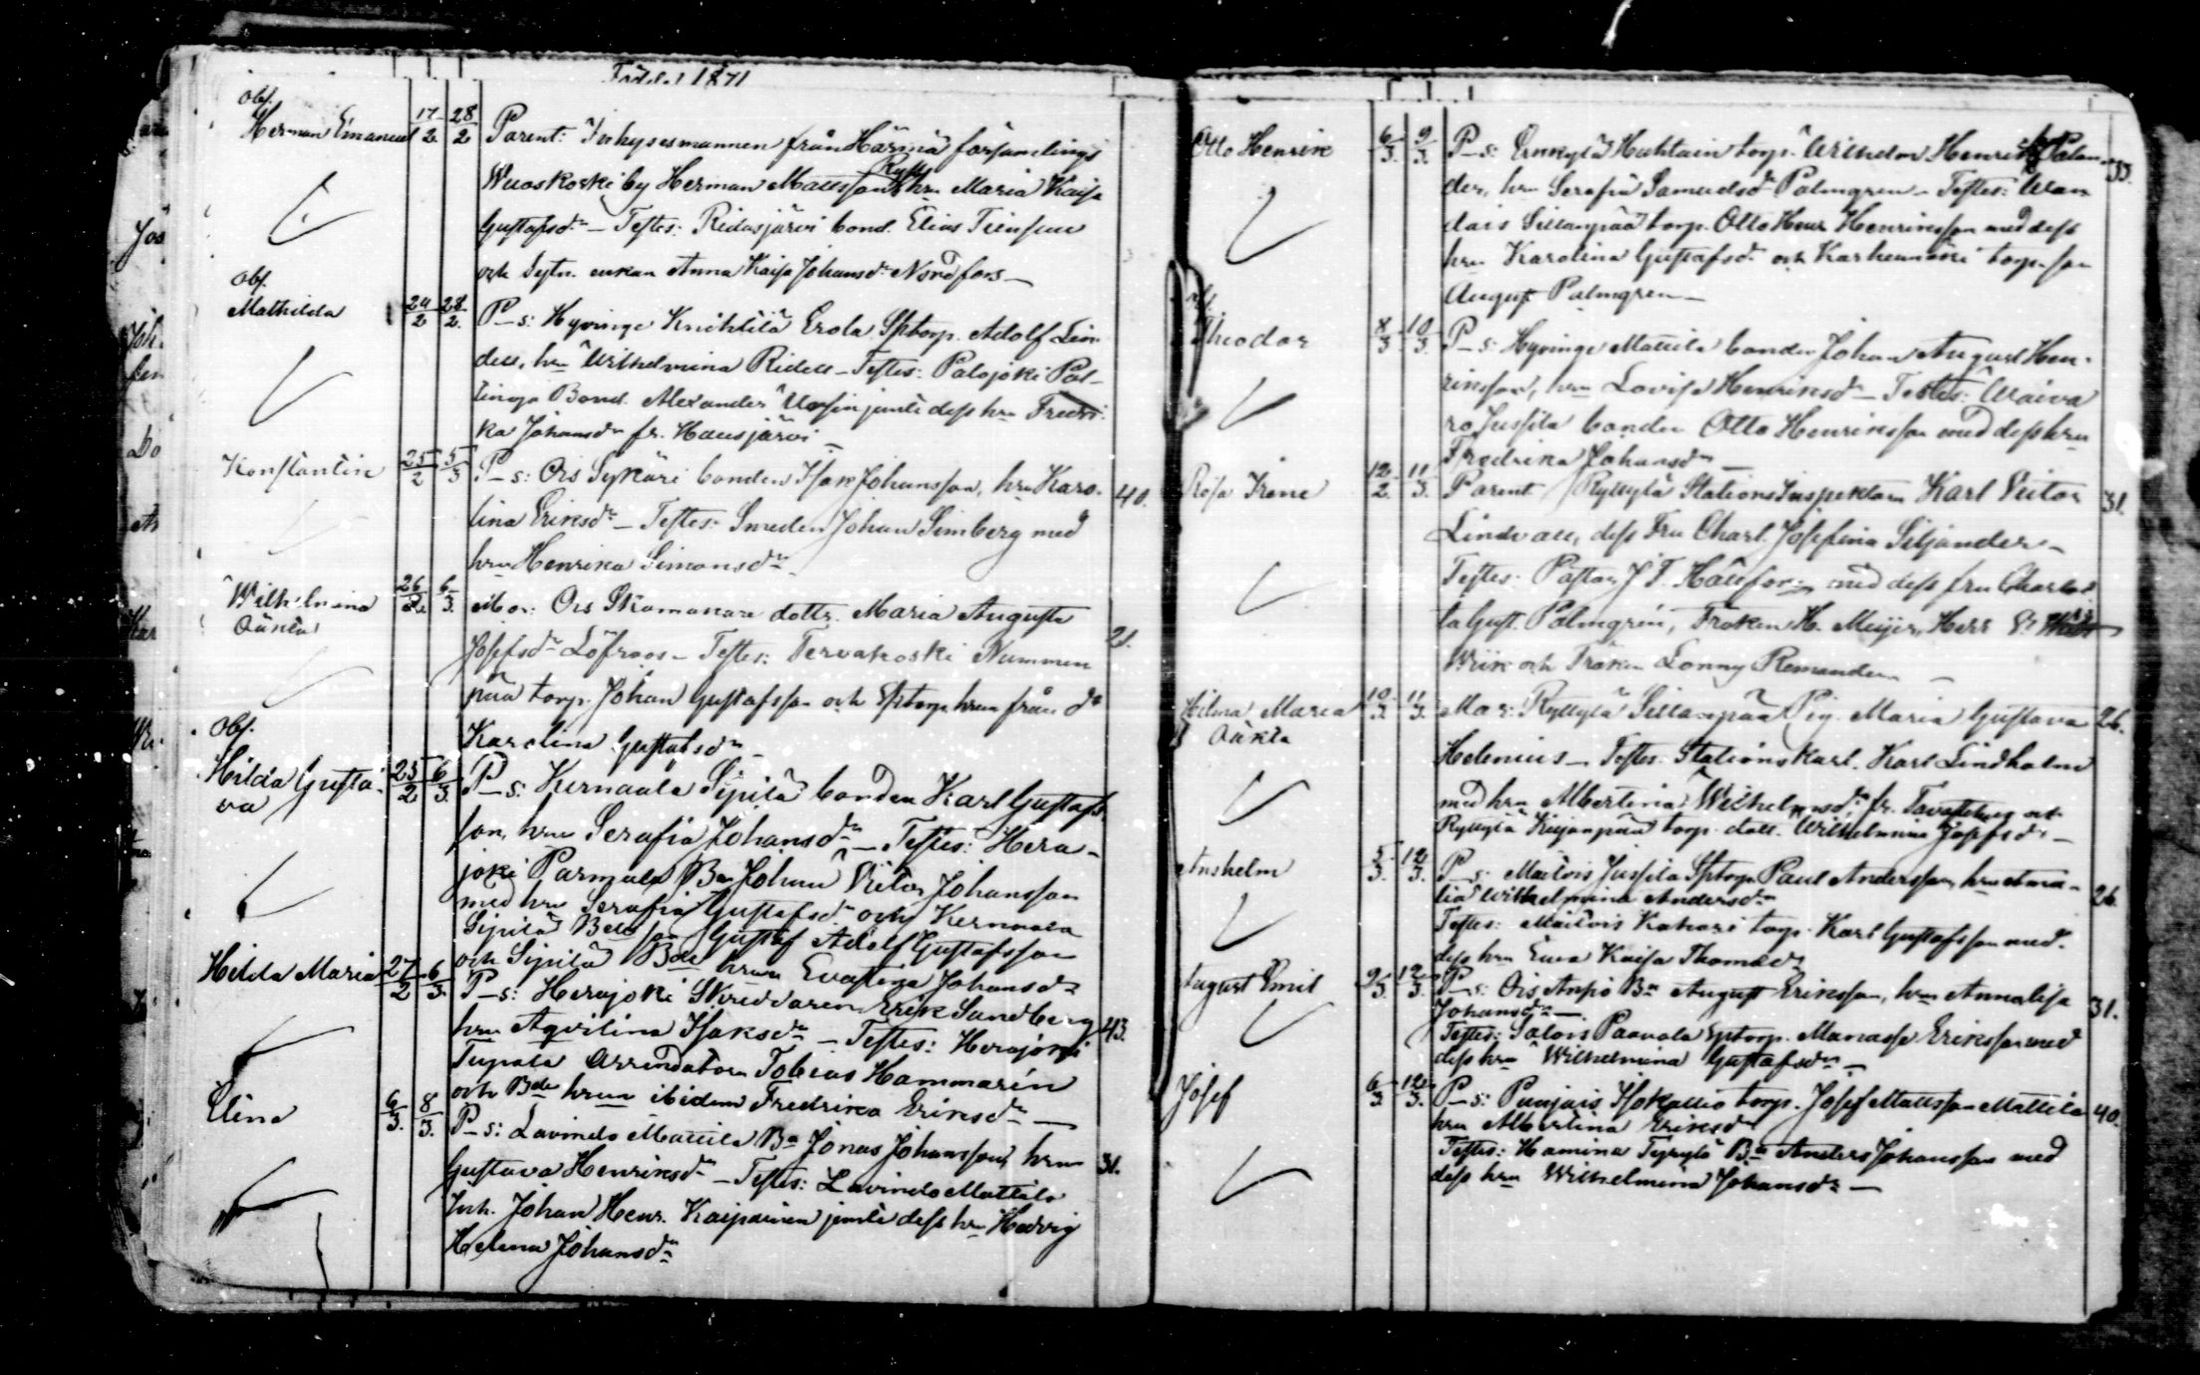 Födde 1871
Obs.
Herman Emanuel 17/2 28/2 Parent: Inhysesmannen från Härmä församlings
Wuoskoski by Herman Mattsson Rytty hru Maria Kaisa
Gustafsdr – Testes: Ridasjärvi bond. Elias Tiensuu
och Sytn. enkan Anna Kaisa Johansdr Nordfors –
Obs.
Mathilda 24/2 28/2 P_s: Hyvinge Knihtilä Erola Sptorp. Adolf Lin-
dell, hru Wilhelmina Ridell – Testes: Palojoki Pal-
linoja Bond. Alexander Ursin jemte dess hru Fredri-
ka Johansdr fr. Hausjärvi –
Konstantin 25/2 5/3 P_s: Ois Sykäri bonden Isak Johansson, hru Karo- 40.
lina Eriksdr – Testes: Smeden Johan Simberg med
hru Henrika Simonsdr
Wilhelmina 26/2 6/3 Mor: Ois Skomakare dottr. Maria Augusta
Oäkta
Josefsdr Löfroos – Testes: Tervakoski Nummen 21.
pää torp. Johan Gustafsson och Sptorp. hrun från do
Karolina Gustafsdr –
Obs.
Hilda Gusta- 25/2 6/3 P_s: Kernaala Sipilä bonden Karl Gustafs-
va
son, hru Serafia Johansdr – Testes: Hera-
joki Parmala Bn Johan Victor Johansson
med hru Serafia Gustafsdr och Kernaala
Sipilä Bde son Gustaf Adolf Gustafsson
och Sipilä Bde hrun Evastina Johansdr
Hilda Maria 27/2 6/3 P_s: Herajoki Skräddaren Erik Sandberg
hru Aqvilina Isaksdr – Testes: Herajoki 43.
Tupala Arrendatorn Tobias Hammarén
och Bde hrun ibidem Fredrika Eriksdr –
Elina 6/3 8/3 P_s: Lavindo Mattila Bn Jonas Johansson, hru
Gustava Henriksdr – Testes: Lavindo Mattila 31.
Inh. Johan Henr. Kaipainen jemte dess hru Hedvig
Helena Johansdr
Otto Henrik 6/3 9/3 P_s: Erkylä Huhtain torp. Wilhelm Henrik Palan- 33.
der, hru Serafia Samuelsdr Palmgren – Testes: Wan-
dais Sillanpää torp. Otto Henr Henriksson med dess
hru Karolina Gustafsdr och Karhunmäki torp. son
August Palmgren –
Theodor 8/3 10/3 P_s: Hyvinge Mattila bonden Johan August Hen-
riksson, hru Lovisa Henriksdr – Testes: Waiva
ro Jussila bonden Otto Henriksson med dess hru
Fredrika Johansdr –
Rosa Irene 12/2 11/3 Parent Ryttylä Stations Inspektorn Karl Victor 31.
Lindvall, dess Fru Charl. Josefina Siljander –
Testes: Pastor J. F. Hällfors med dess fru Charlot
ta Gust. Palmgren, Fröken H. Meijer, Herr
Wiik och Fröken Lonny Remander –
Hilma Maria 10/3 11/3 Mor: Ryttylä Sillanpää Pig. Maria Gustava 26.
Oäkta
Helenius – Testes: Stationskarl. Karl Lindholm
med hru Albertina Wilhelmsdr fr. Tavastehus och
Ryttylä Keijanpää torp. dott. Wilhelmina Josefsdr –
Anshelm 5/3 12/3 P_s: Maitois Jussila Sptorp. Paul Andersson, hru Ama-
lia Wilhelmina Andersdr 26.
Testes: Maitois Kahari torp. Karl Gustafsson med
dess hru Ewa Kaisa Thomasdr
August Emil 9/3 12/3 P_s: Ois Anpio Bn August Eriksson, hru Annalisa 31.
Johansdr –
Testes: Salois Paavola Sptorp. Manasse Eriksson med
dess hru Wilhelmina Gustafsdr –
Josef 6/3 12/3 P_s: Punjais Isokallio torp. Josef Mattsson Mattila 40.
hru Albertina Eriksdr
Testes: Hamina Tyrylä Bn Anders Johansson med
dess hru Wilhelmina Johansdr –